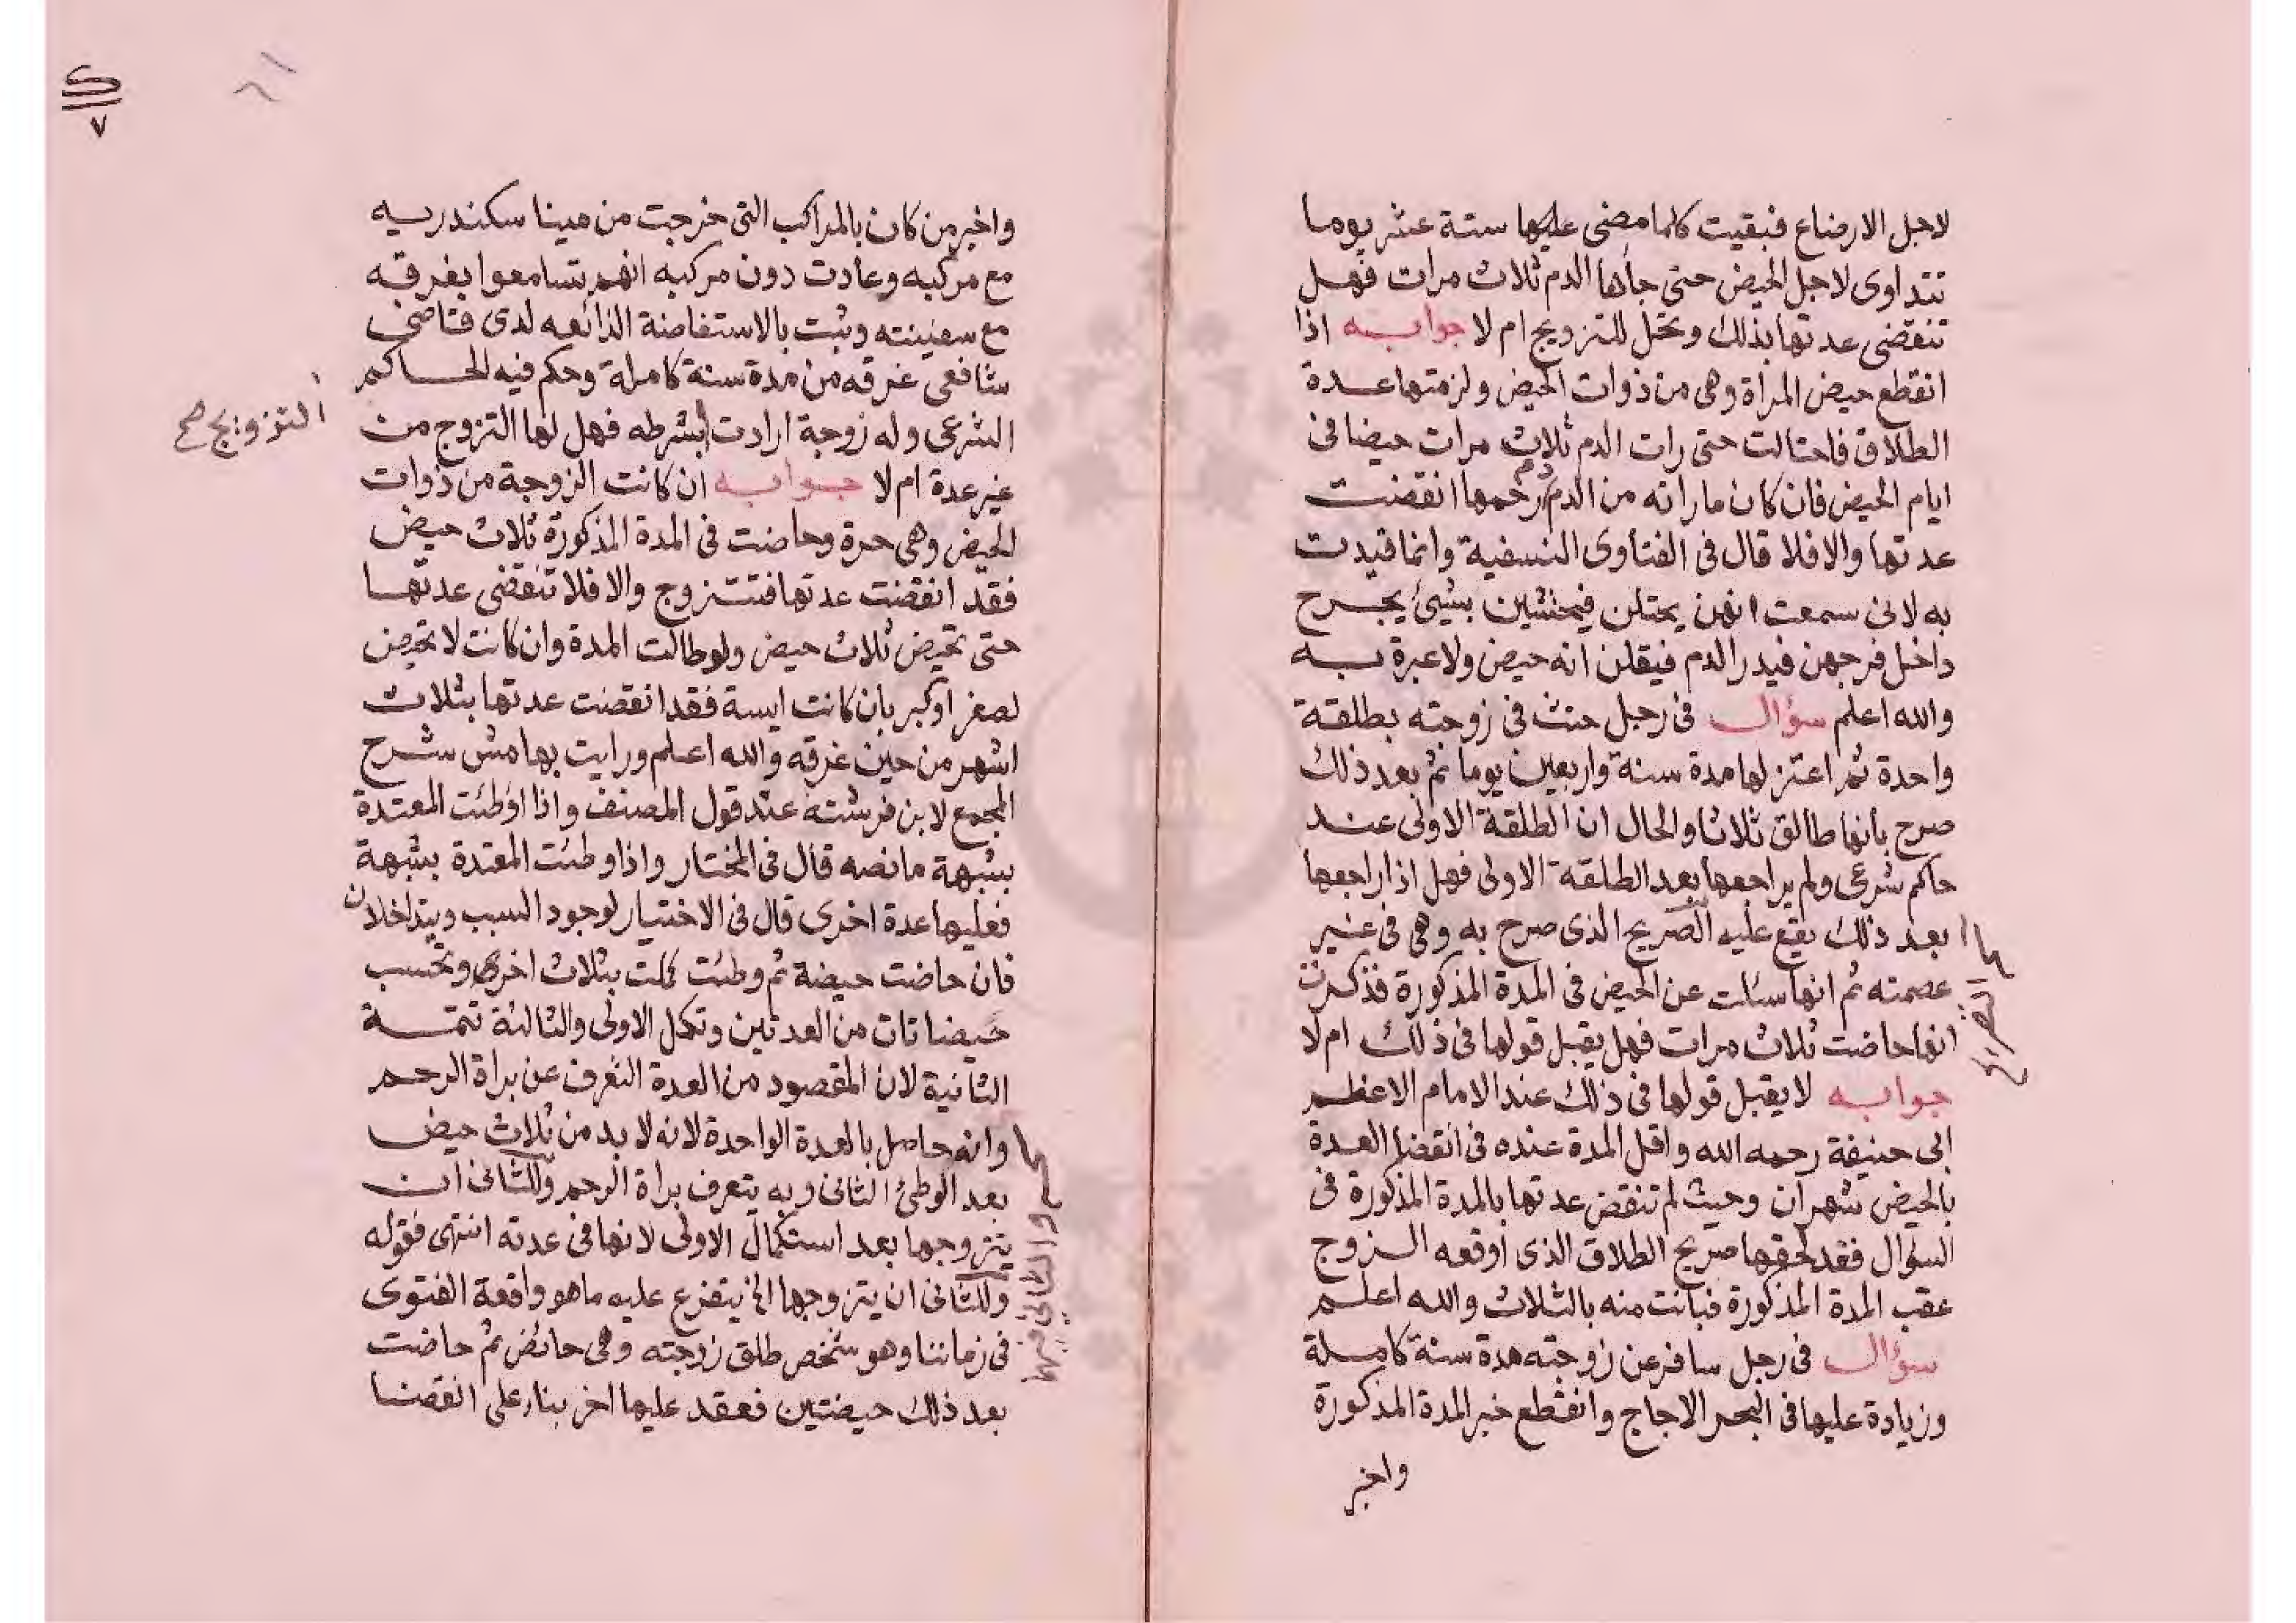 لاجل الارضاع فبقيت كلما مضى عليها ستة عشر يوما
تتداوى لاجل الحيض حتى جاءها الدم ثلاث مرات فهل
تنقضى عدتها بذلك وتحل للتزويج ام لا جوابه اذا
انقطع حيض المراة وهى من ذوات الحيض ولزمتها عدة
الطلاق فاحتالت حتى رات الدم ثلاث مرات حيضا فى
ايام الحيض فان كان ما راته من الدم دم رحمها انقضت
عدتها والا فلا قال فى الفتاوى النسفية وانما قيدت
به لانى سمعت انهن يحتلن فيحتشين بشيئ يجرح
داخل فرجهن فيدر الدم فيقلن انه حيض ولا عبرة به
والله اعلم سؤال فى رجل حنث فى زوجته بطلقة
واحدة ثم اعتزلها مدة سنة واربعين يوما ثم بعد ذلك
صرح بانها طالق ثلاثا والحال ان الطلقة الاولى عند
حاكم شرعى ولم يراجعها بعد الطلقة الاولى فهل اذا راجعها
بعد ذلك يقع عليه الصريح الذى صرح به وهى فى غير
عصمته ثم انها سئلت عن الحيض فى المدة المذكورة فذكرت
انها حاضت ثلاث مرات فهل يقبل قولها فى ذلك ام لا
جوابه لا يقبل قولها فى ذلك عند الامام الاعظم
ابى حنيفة رحمه الله واقل المدة عنده فى انقضا العدة
بالحيض شهران وحيث لم تنقض عدتها بالمدة المذكورة فى
السؤال فقد لحقها صريح الطلاق الذى اوقعه الزوج
عقب المدة المذكورة فبانت منه بالثلاث والله اعلم
سؤال فى رجل سافر عن زوجته مدة سنة كاملة
وزيادة عليها فى البحر الاجاج وانقطع خبر المدة المذكورة
واخبر
٧
واخبر من كان بالمراكب التى خرجت من مينا سكندريه
مع مركبه وعادت دون مركبه انهم تسامعوا بغرقه
مع سفينته وثبت بالاستفاضة الذائعه لدى قاضى
شافعى غرقه من مدة سنة كاملة وحكم فيه الحاكم
الشرعى وله زوجة ارادت بشرطه فهل لها التزوج من
التزويج صح
غير عدة ام لا جوابه ان كانت الزوجة من ذوات
الحيض وهى حرة وحاضت فى المدة المذكورة ثلاث حيض
فقد انقضت عدتها فتتزوج والا فلا تنقضى عدتها
حتى تحيض ثلاث حيض ولو طالت المدة وان كانت لا تحيض
لصغر او كبر بان كانت ايسة فقد انقضت عدتها بثلاث
اشهر من حين غرقه والله اعلم ورايت بهامش شرح
المجمع لابن فرشته عند قول المصنف واذا اوطئت المعتدة
بشبهة ما نصه قال فى المختار واذا وطئت المعتدة بشبهة
فعليها عدة اخرى قال فى الاختيار لوجود السبب ويتداخلان
فان حاضت حيضة ثم وطئت كملت بثلاث اخرى وتحسب
حيضاتان من العدتين وتكمل الاولى والثالثة تتمة
الثانية لان المقصود من العدة التعرف عن براة الرحم
وانه حاصل بالعدة الواحدة لانه لا بد من ثلاث حيض
بعد الوطئ الثانى وبه يتعرف براة الرحم وللثانى ان
يتزوجها بعد استكمال الاولى لانها فى عدته انتهى فقوله
وللثانى ان يتزوجها الخ يتفرع عليه ما هو واقعة الفتوى
فى زماننا وهو شخص طلق زوجته وهى حائض ثم حاضت
بعد ذلك حيضتين فعقد عليها اخر بناء على انقضا